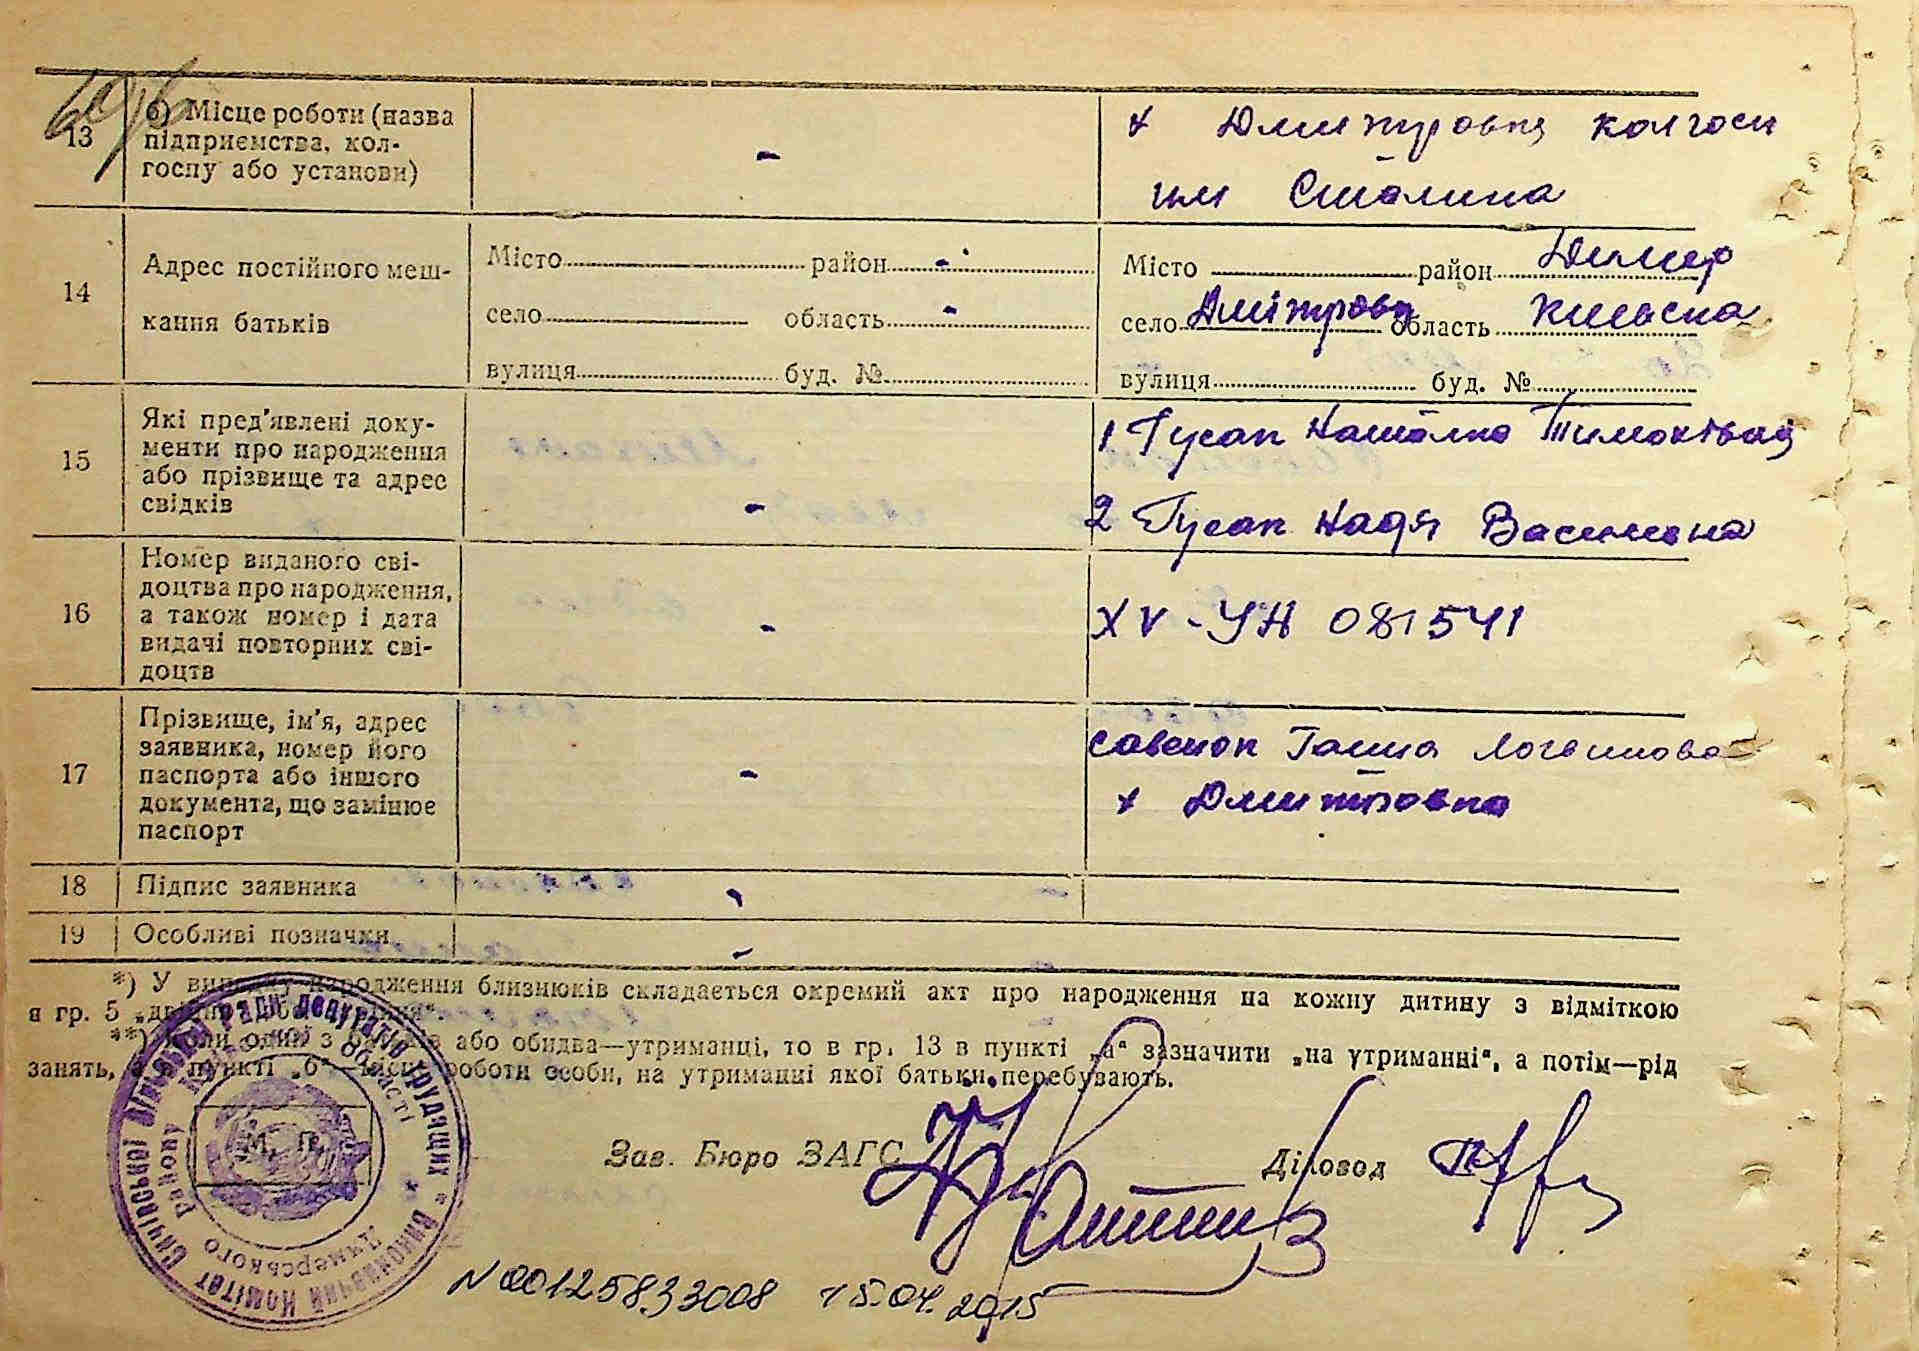 13
б) Місце роботи (назва
підприємства, кол-
госпу або установи)
-
х Дмитровка колгосп
им Сталина
14
Адрес постійного меш-
кання батьків
Місто район -
село область -
вулиця буд. №
Місто район Димер
село Дмітровка область Київська
вулиця буд. №
15
Які пред'явлені доку-
менти про народження
або прізвище та адрес
свідків
-
1 Гусак Наталка Тимохівна
2 Гусак Надя Василівна
16
Номер виданого сві-
доцтва про народження,
а також номер і дата
видачі повторних сві-
доцтв
-
XV - УН 081541
17
Прізвище, ім'я, адрес
заявника, номер його
паспорта або іншого
документа, що замінює
паспорт
-
Савенок Ганна Логвинова
х Дмитровка
18 Підпис заявника -
19 Особливі позначки -
*) У випадку народження близнюків складається окремий акт про народження на кожну дитину з відміткою
в гр. 5
**) Коли один з батьків або обидва—утриманці, то в гр. 13 в пункті „а“ зазначити „на утриманні“, а потім—рід
занять, а в пункті „б“—місце роботи особи, на утриманні якої батьки перебувають.
М. П.
Виконавчий Комітет Сичівської сільської ради депутатів трудящих
Димерського району Київської області
Зав. Бюро ЗАГС
Діловод
N 00125833008 15.04.2015